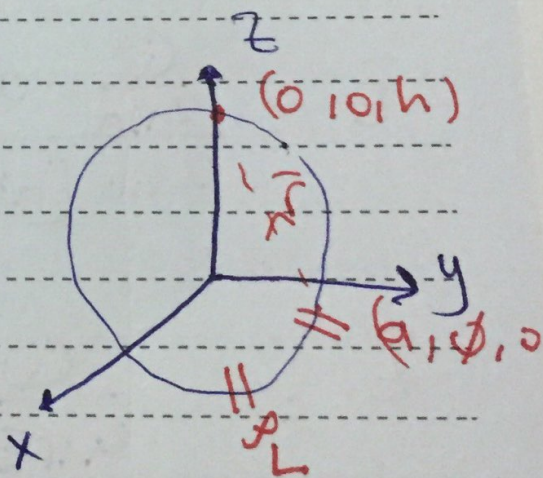 z
(0,0,h)
R
y
(a,φ,0
x
ρL